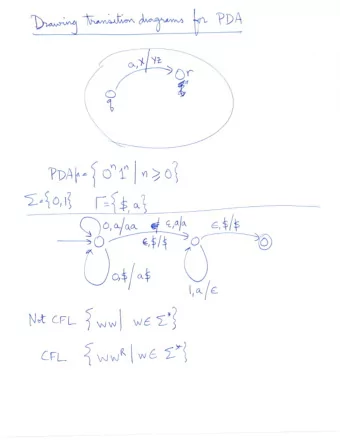 Drawing transition diagrams for PDA
a, X / YZ
q
r
PDA for { 0ⁿ1ⁿ | n ⩾ 0 }
Σ = {0,1} Γ = { $, a }
0, a/aa ε, a/a ε, $/$
ε, $/$
0, $/a$
1, a/ε
Not CFL { ww | w ∈ Σ* }
CFL { wwᴿ | w ∈ Σ* }